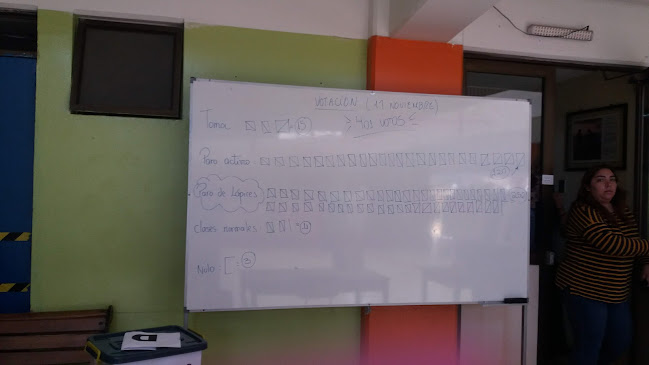 VOTACIÓN (11 NOVIEMBRE)
≥ 401 VOTOS ≤
Toma
Paro activo:
Paro de Lápices:
clases normales:
Nulo